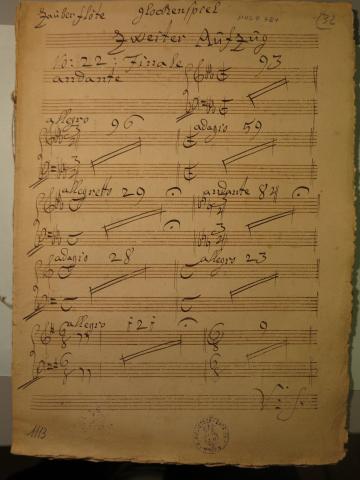 Zauberflöte glockenspiel 132
Zweiter Aufzug
No: 22: Finale 93
andante
allegro 96 adagio 59
allegretto 29 andante 84
adagio 28 allegro 23
allegro 121 9
V: S:
1113